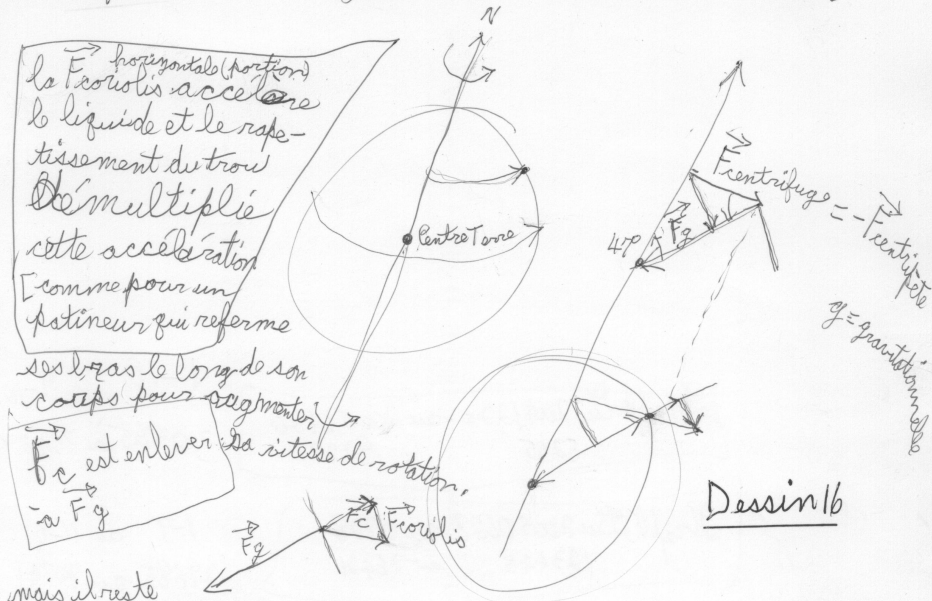 N
la F horizontale (portion)
coriolis accélère
le liquide et le rape-
tissement du trou
démultiplie
cette accélération
[comme pour un
patineur qui referme
ses bras le long de son
corps pour augmenter]
sa vitesse de rotation.
Fc est enlever
à Fg
Centre Terre
47°
Fg
Fcentrifuge = - Fcentripète
g = gravitationnelle
Fg
Fc
Fcoriolis
Dessin 16
mais il reste